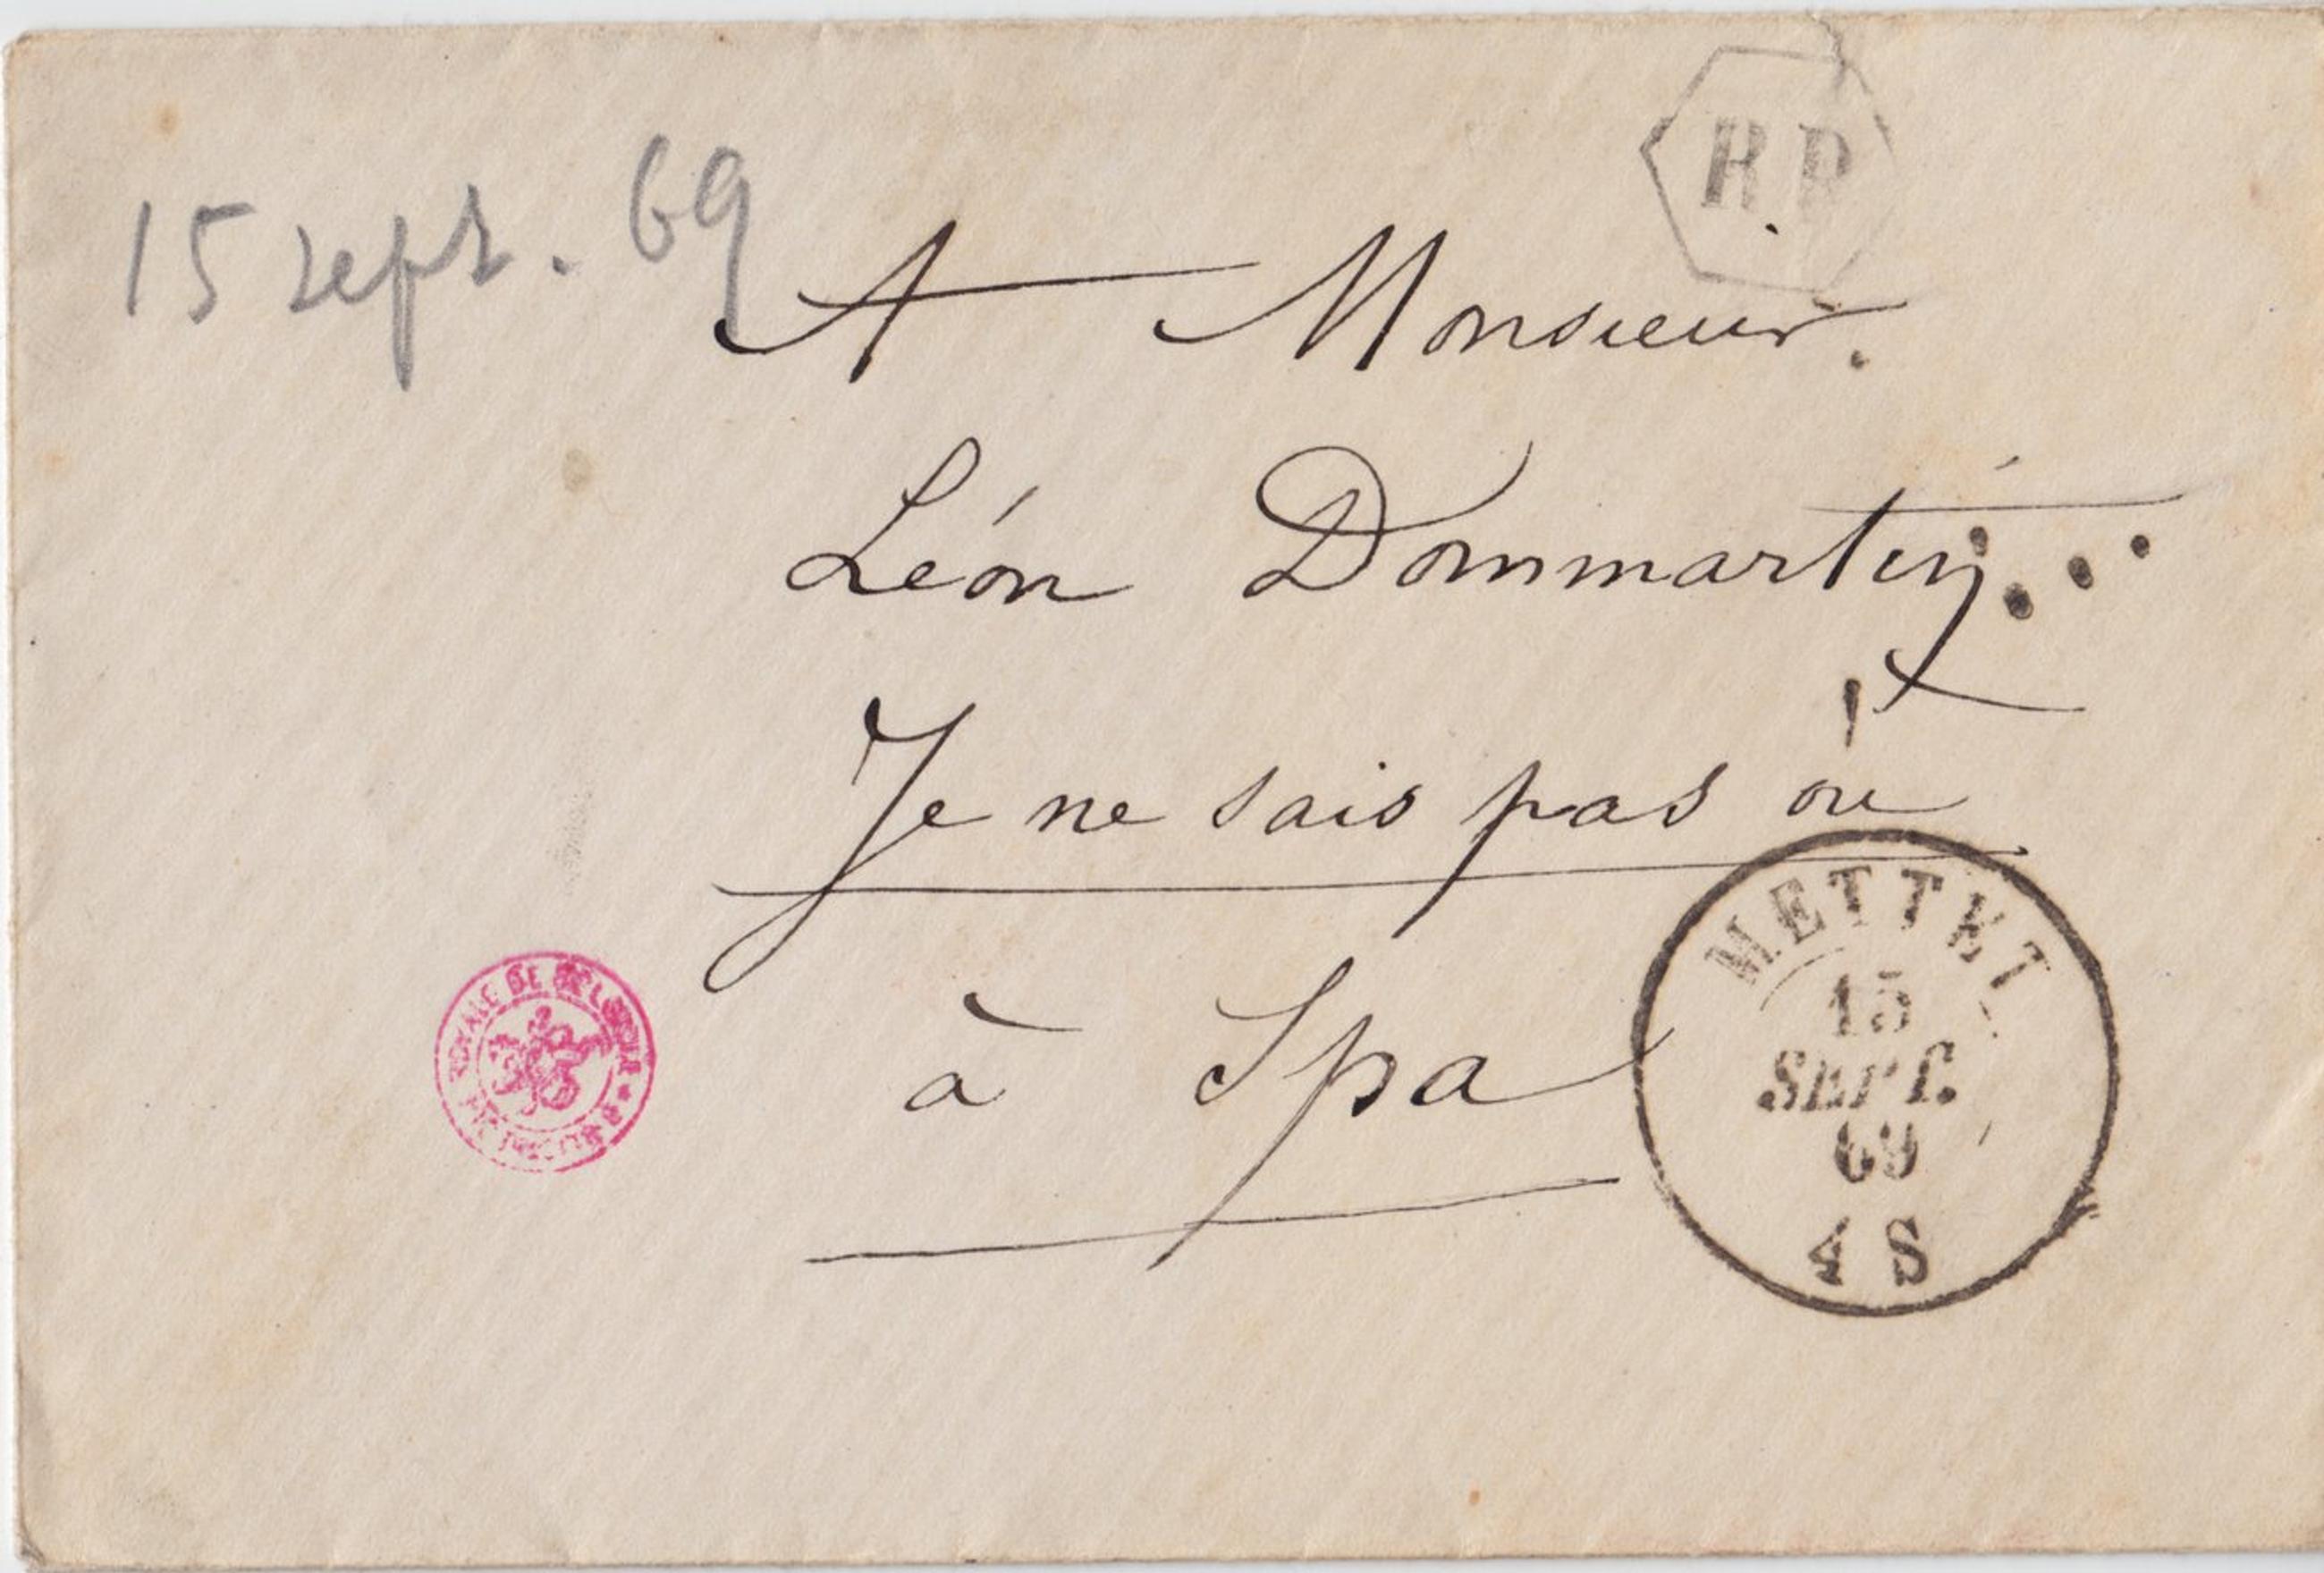 15 sept. 69
R.P
A Monsieur.
Léon Dommartin...
Je ne sais pas où !
à Spa
METTET
15
SEPT.
69
4 S
ROYALE DE BELGIQUE